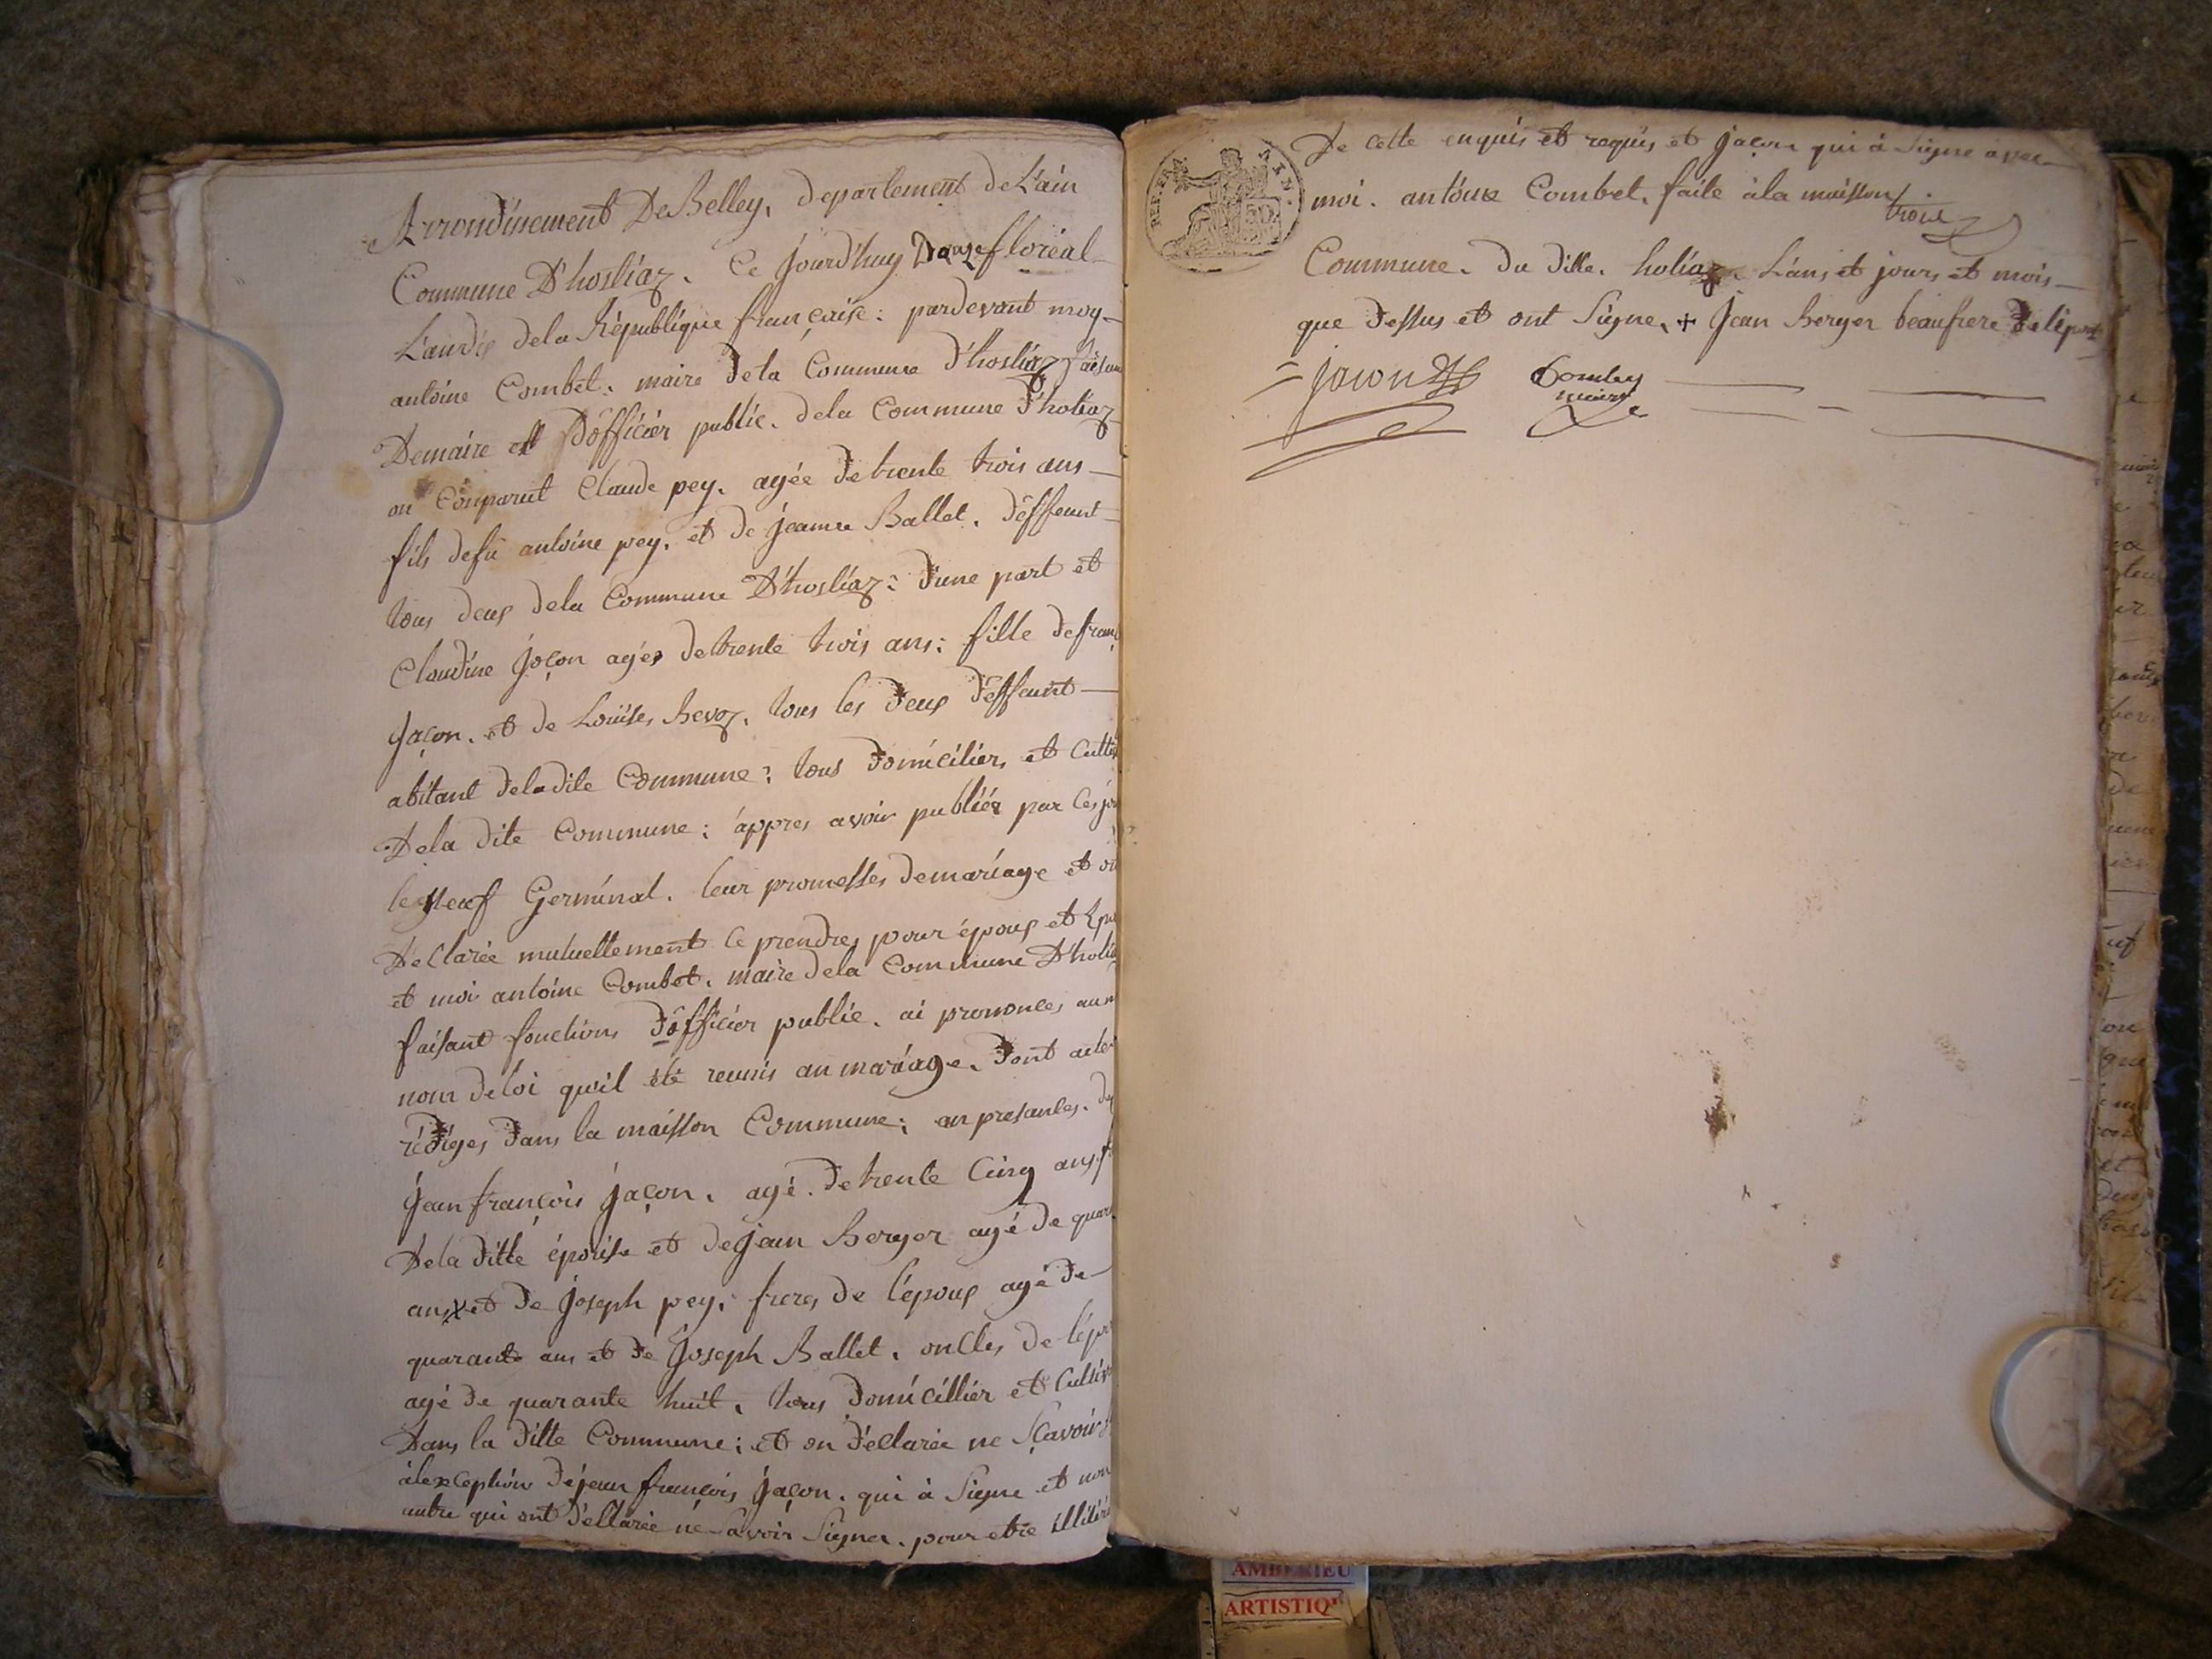 Arrondisement De Belley, departement de L'ain
Commune D'hosliaz. Ce jourd'huy Douze floréal
L'an dix dela République française: pardevant moy
antoine Combet. maire dela Commune d'hosliaz faisant
Demaire et D'officier public. dela Commune d'holiaz
on Comparut Claude pey. agée de trente trois ans
fils defû antoine pey. et de jeanne Ballet. déffeunt
tous deux dela Commune D'hosliaz: d'une part et
Claudine Jaçon agés detrente trois ans: fille defran
Jaçon. et de Louises Bevoz. tous les deux déffeunt
abitant deladite Commune: tous domicilier, et Culti
Dela dite Commune: appres avoir publiér par Ces jou
le neuf Germinal. leur promesses demariage et on
declarée mutuellement Ce prendres pour époux et Epou
et moi antoine Combet. maire dela Commune D'holi
faisant fonctions d'officier public. ai prononces au
nom deloi qu'il été reunis an mariage. dont acte
rédiges dans la maisson Commune; an presances. de
Jean françois Jaçon. agé. de trente Cinq ans f
Dela ditte épouse et de jean Berger agé de quar
ans et de joseph pey. freres de l'époux agé de
quarante ans et de Joseph Ballet. oncles de lépo
agé de quarante huit. tous domicillier et Cultiv
Dans la ditte Commune: et on déclarée ne Sçavoir
à lexception de jean françois Jaçon. qui à Signe et non
autre qui ont déclarée ne Savoir Signer. pour etre illitéré
De cette enquis et requis et Jaçon qui à Signe avec
moi. antoine Combet. faite à la maisson
Commune. du ditte. holiaz L'ans et jours et mois
que dessus et ont Signe. + Jean Berger beaufrere de l'épou
Jacon Combet
maire
REP. FRA.
50
AMBERIEU
ARTISTIQ